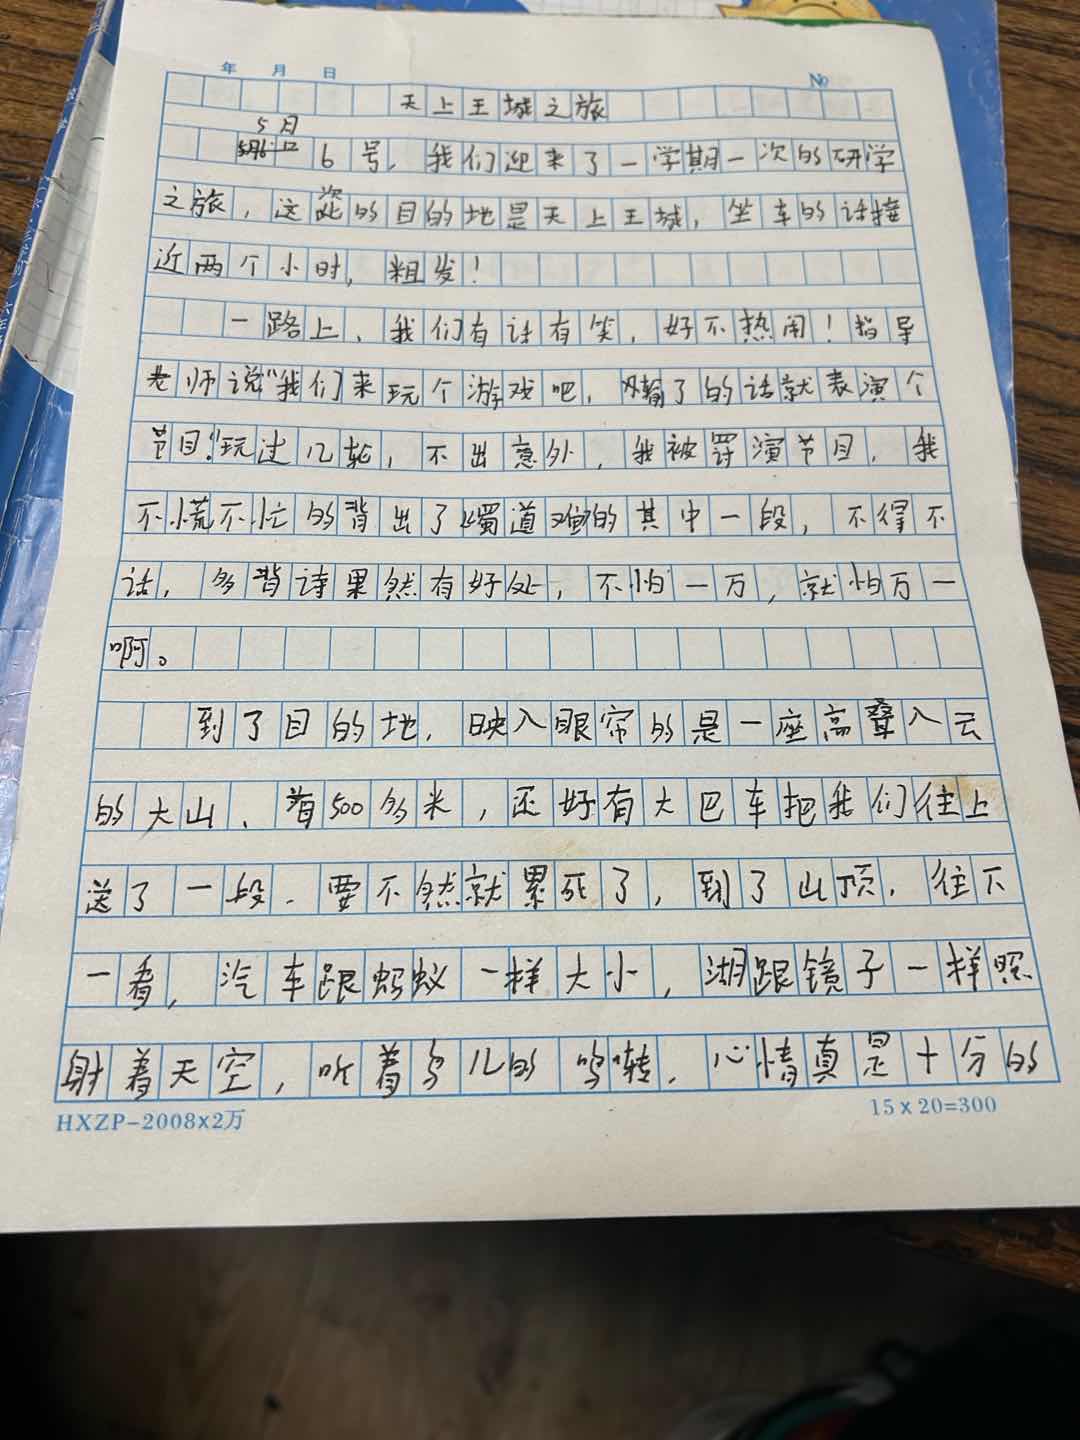 年 月 日 No
天上王城之旅
5月
6号，我们迎来了一学期一次的研学
之旅，这次的目的地是天上王城，坐车的话接
近两个小时，粗发！
一路上，我们有话有笑，好不热闹！指导
老师说“我们来玩个游戏吧，输了的话就表演个
节目！”玩过几轮，不出意外，我被罚演节目，我
不慌不忙的背出了《蜀道难》的其中一段，不得不
话，多背诗果然有好处，不怕一万，就怕万一
啊。
到了目的地，映入眼帘的是一座高叠入云
的大山、有500多米，还好有大巴车把我们往上
送了一段．要不然就累死了，到了山顶，往下
一看，汽车跟蚂蚁一样大小，湖跟镜子一样照
射着天空，听着鸟儿的鸣转，心情真是十分的
HXZP-2008×2万
15×20=300